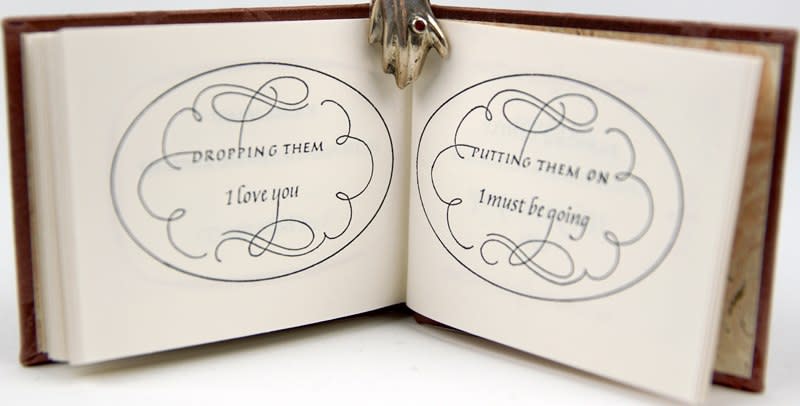 DROPPING THEM
I love you
PUTTING THEM ON
I must be going